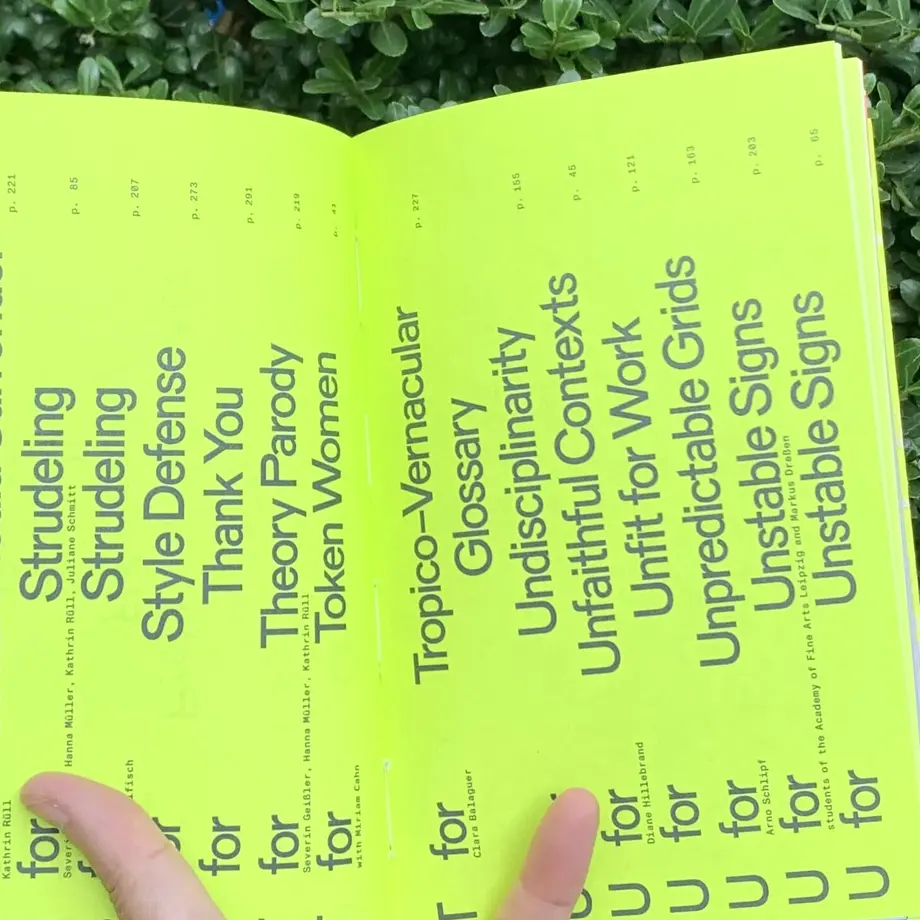 p. 221
Kathrin Rüll
for Strudeling p. 85
Severin Hanna Müller, Kathrin Rüll, Juliane Schmitt
Strudeling p. 207
Style Defense p. 273
for Thank You p. 291
for Theory Parody p. 219
Severin Geißler, Hanna Müller, Kathrin Rüll
for Token Women p. 41
with Miriam Cahn
T for Tropico–Vernacular p. 227
Clara Balaguer
Glossary
Undisciplinarity p. 155
U for Unfaithful Contexts p. 45
Diane Hillebrand
U for Unfit for Work p. 121
U for Unpredictable Grids p. 163
Arno Schlipf
U for Unstable Signs p. 203
students of the Academy of Fine Arts Leipzig and Markus Dreßen
U for Unstable Signs p. 65